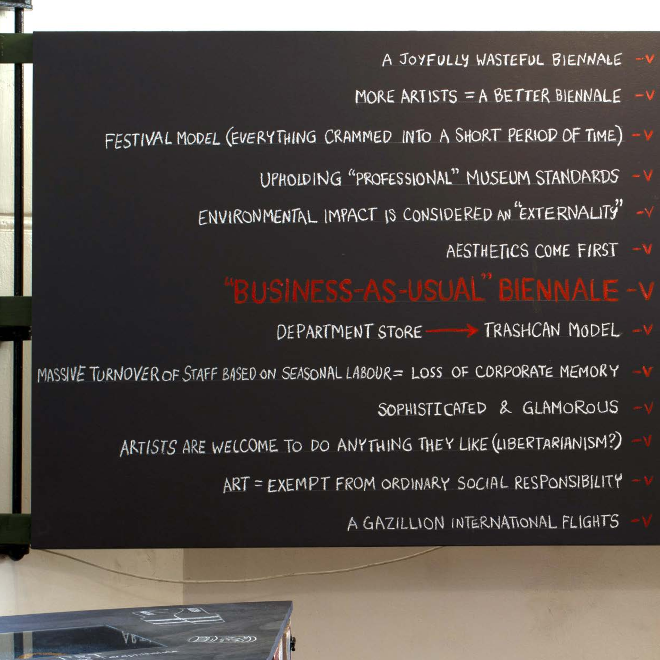 A JOYFULLY WASTEFUL BIENNALE -V
MORE ARTISTS = A BETTER BIENNALE -V
FESTIVAL MODEL (EVERYTHING CRAMMED INTO A SHORT PERIOD OF TIME) -V
UPHOLDING "PROFESSIONAL" MUSEUM STANDARDS -V
ENVIRONMENTAL IMPACT IS CONSIDERED AN "EXTERNALITY" -V
AESTHETICS COME FIRST -V
"BUSINESS-AS-USUAL" BIENNALE -V
DEPARTMENT STORE → TRASHCAN MODEL -V
MASSIVE TURNOVER OF STAFF BASED ON SEASONAL LABOUR = LOSS OF CORPORATE MEMORY -V
SOPHISTICATED & GLAMOROUS -V
ARTISTS ARE WELCOME TO DO ANYTHING THEY LIKE (LIBERTARIANISM?) -V
ART = EXEMPT FROM ORDINARY SOCIAL RESPONSIBILITY -V
A GAZILLION INTERNATIONAL FLIGHTS -V